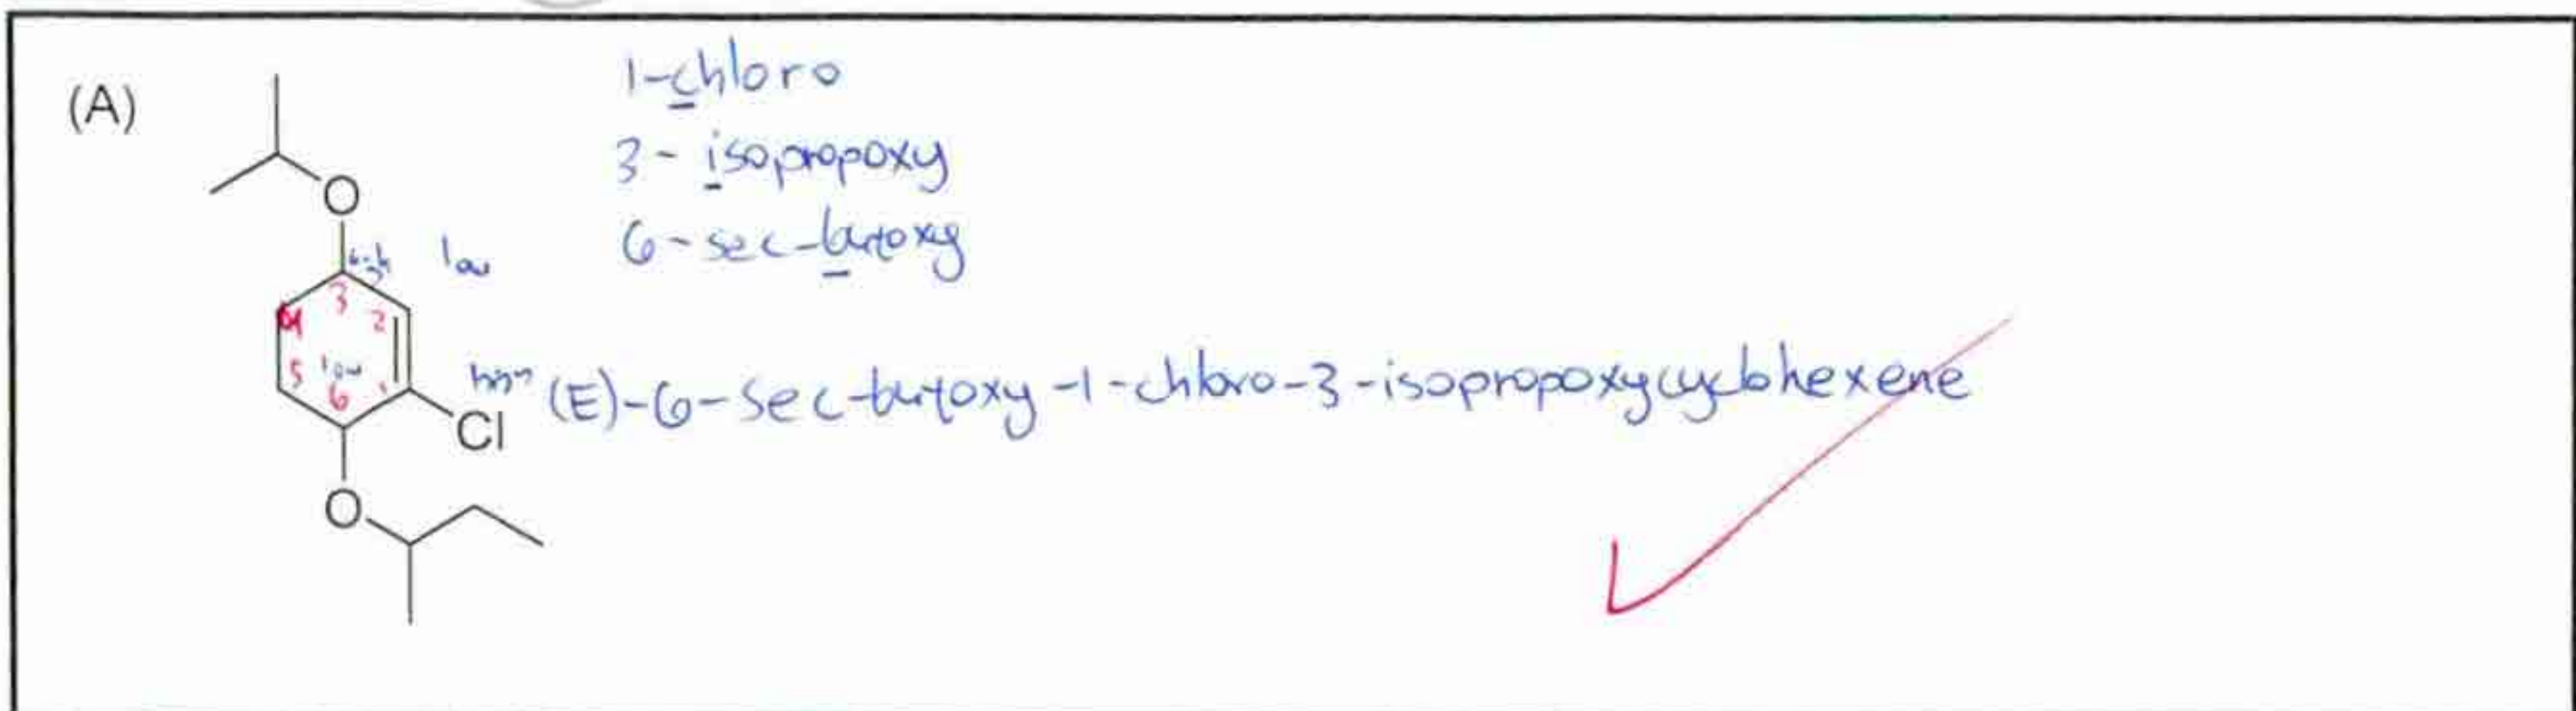 (A)
1-chloro
3-isopropoxy
6-sec-butoxy
O
low
3
2
4
5
low
6
1
high (E)-6-sec-butoxy-1-chloro-3-isopropoxycyclohexene
Cl
O